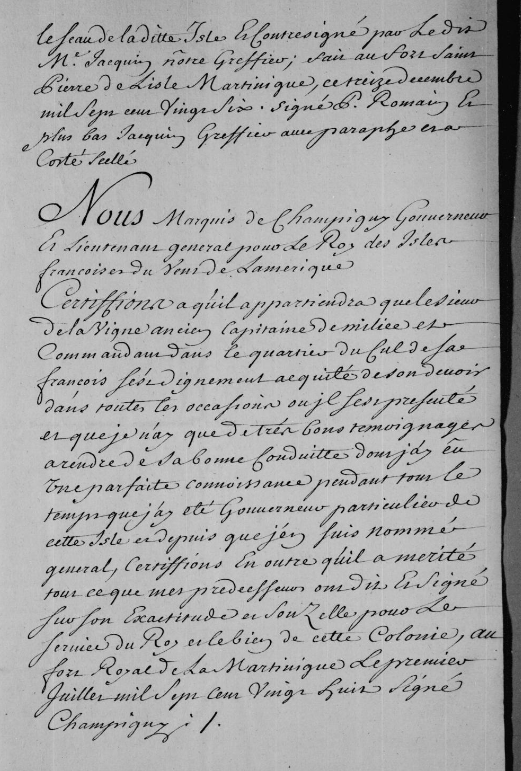 le seau de la ditte Isle Et Contresigné par Le dit
Mr. Jacquin nôtre Greffier; fait au fort Saint
Pierre de Lisle Martinique, ce treize decembre
mil Sept cent Vingt Six. signé P. Romain Et
plus bas Jacquin Greffier avec paraphe et a
Coté Scellé
Nous Marquis de Champigny Gouverneur
Et Lieutenant general pour Le Roy des Isles
françoises du Vent de Lamerique
Certiffions a qu'il appartiendra que le sieur
de la Vigne ancien Capitaine de milice et
Commandant dans le quartier du Cul de Sac
françois s'est dignement acquité de son devoir
dans toutes les occasions ou jl s'est presenté
et que je n'ay que de trés bons temoignages
a rendre de sa bonne Conduitte dont j'ay eû
Vne parfaite connoissance pendant tout le
temps que j'ay eté Gouverneur particulier de
cette Isle et depuis que j'en suis nommé
general, Certiffions En outre qu'il a merité
tout ce que mes predecesseurs ont dit Et Signé
sur son Exactitude et son Zelle pour Le
service du Roy et le bien de cette Colonie, au
fort Royal de La Martinique Le premier
Juillet mil Sept cent Vingt huit Signé
Champigny ./.